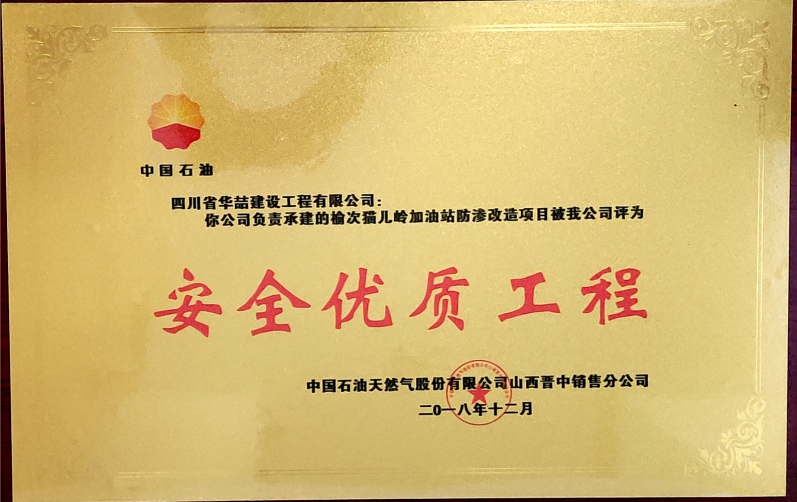 中国石油
四川省华喆建设工程有限公司:
你公司负责承建的榆次猫儿岭加油站防渗改造项目被我公司评为
安全优质工程
中国石油天然气股份有限公司山西晋中销售分公司
二0一八年十二月